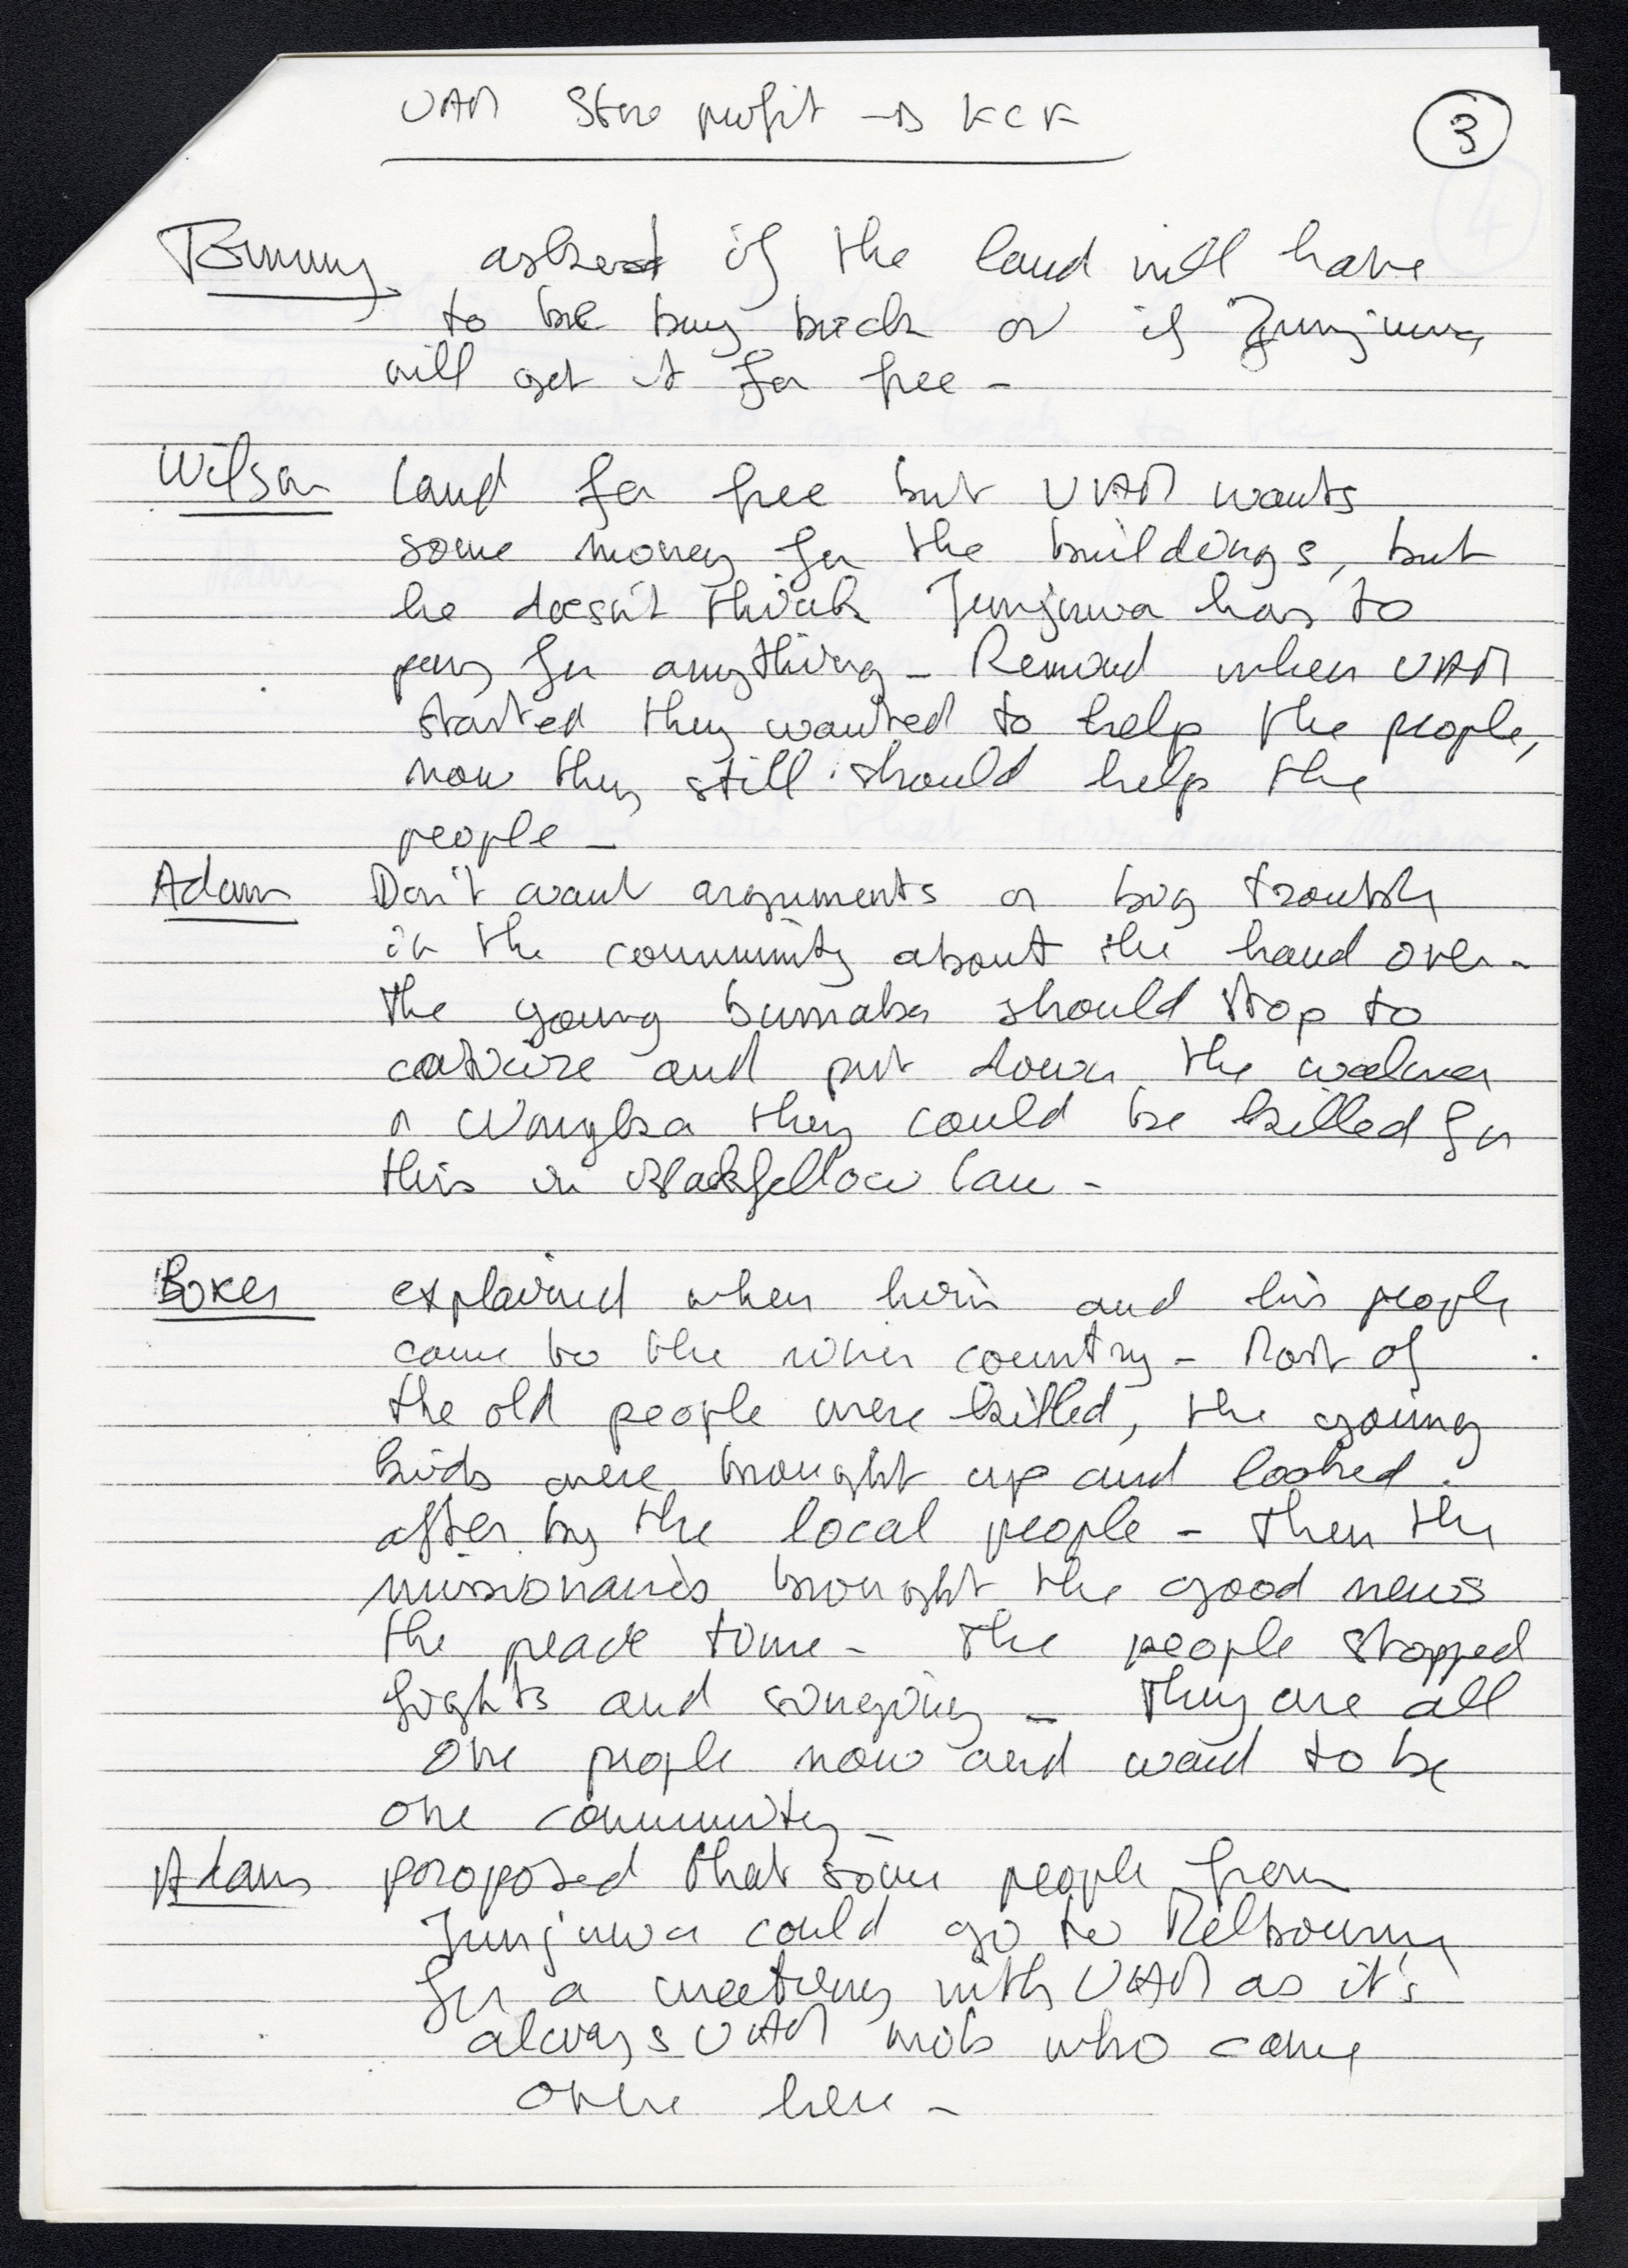 UAM Store profit → KCK
3
Tommy asked if the land will have
to be buy back or if Junjuwa
will get it for free -
Wilson Land for free but UAM wants
some money for the buildings, but
he doesn't think Junjuwa has to
pay for anything - Remind when UAM
started they wanted to help the people,
now they still should help the
people -
Adam Don't want arguments or big trouble
in the community about the hand over -
the young bunaba should stop to
and put down the walma
they could be killed for
this in Blackfellow law -
Boxer explained when him and his people
came to the river country - Most of
the old people were killed, the young
kids were brought up and looked
after by the local people - then the
missionaries brought the good news
the peace time - The people stopped
fights and singing - They are all
one people now and want to be
one community -
Adam proposed that some people from
Junjuwa could go to Melbourne
for a meeting with UAM as it's
always UAM mob who come
over here -